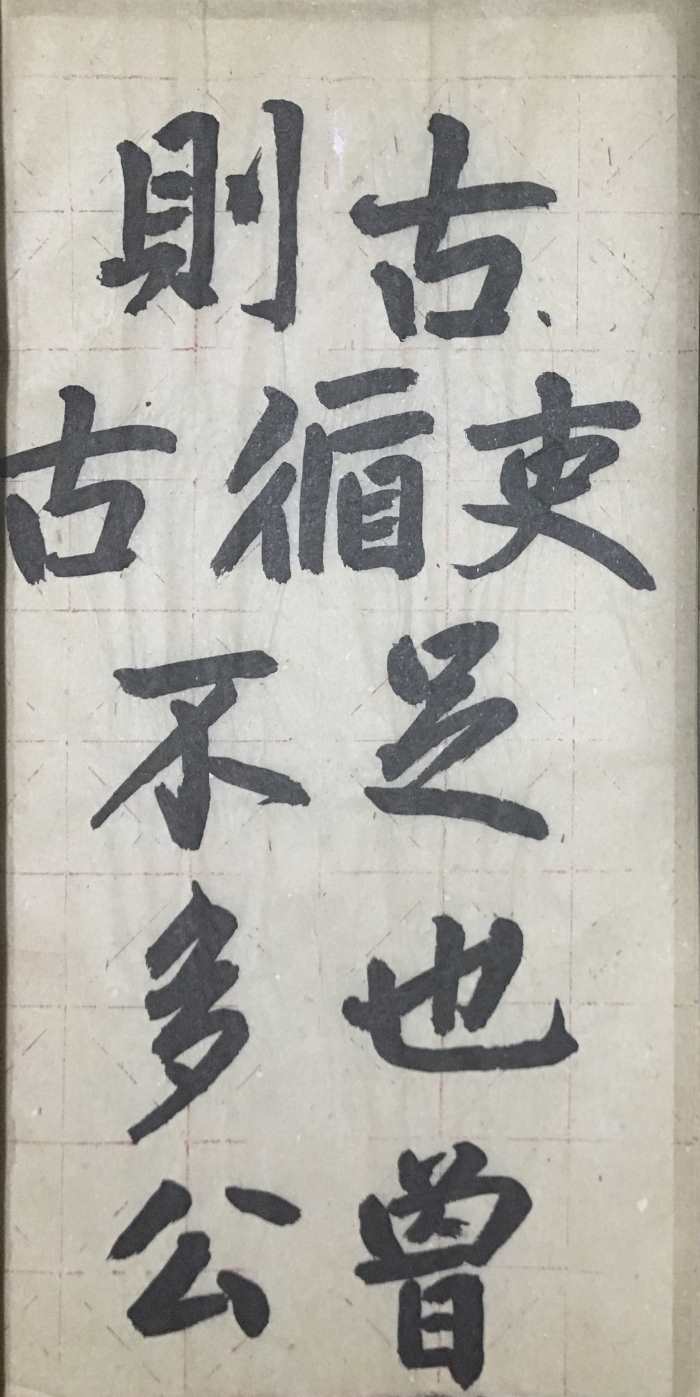 則古
古循吏
不足
多也
公曾